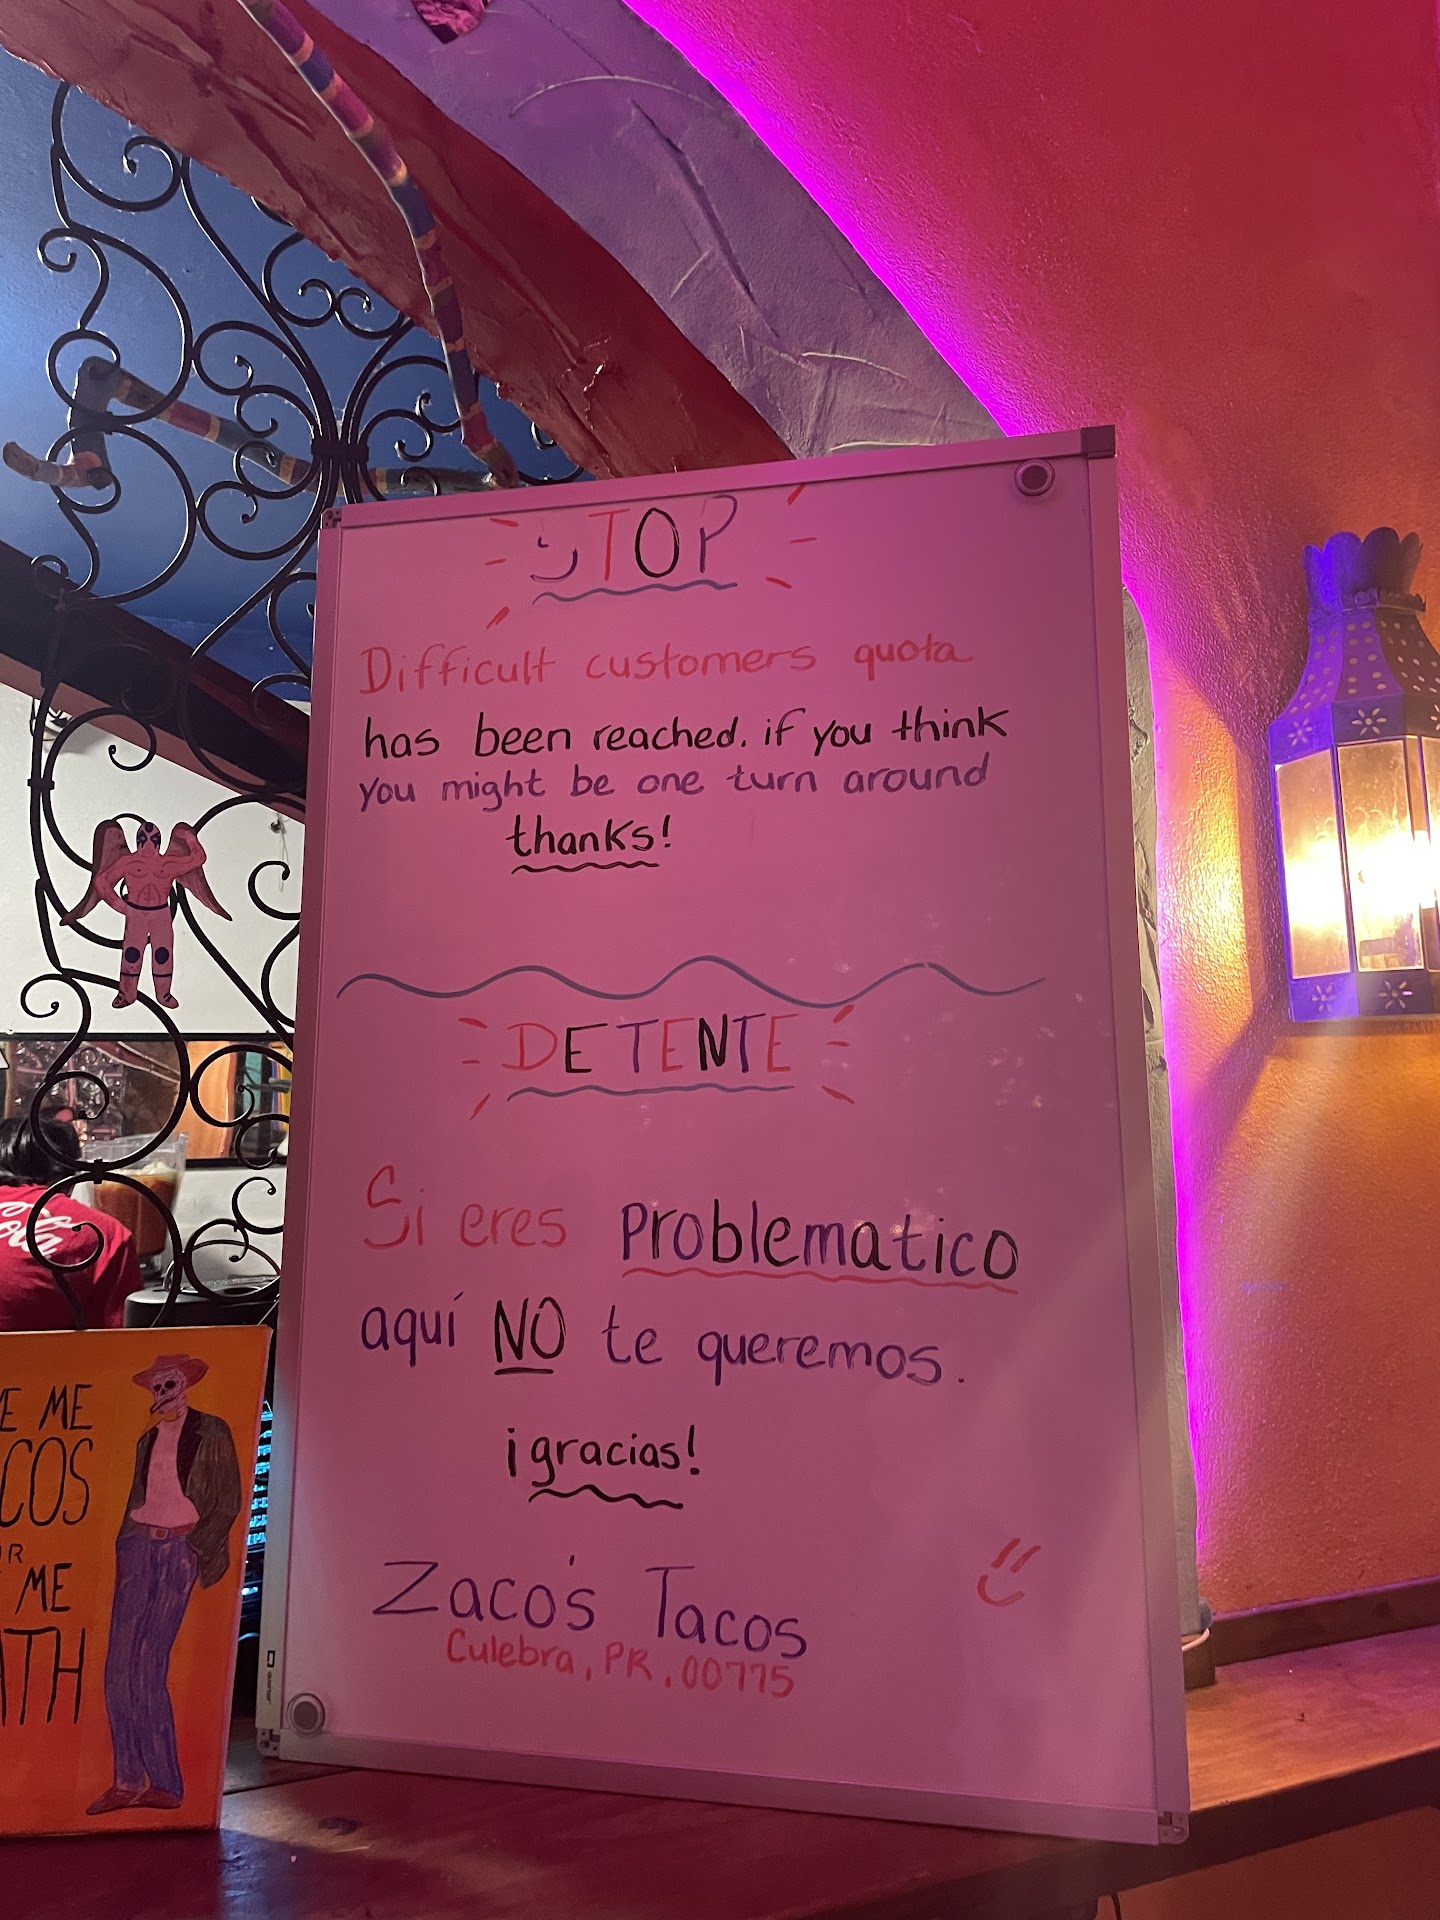 STOP
Difficult customers quota
has been reached. if you think
you might be one turn around
thanks!
DETENTE
Si eres Problematico
aquí NO te queremos.
¡gracias!
Zaco's Tacos
Culebra, PR, 00775
Cola
ME
ME